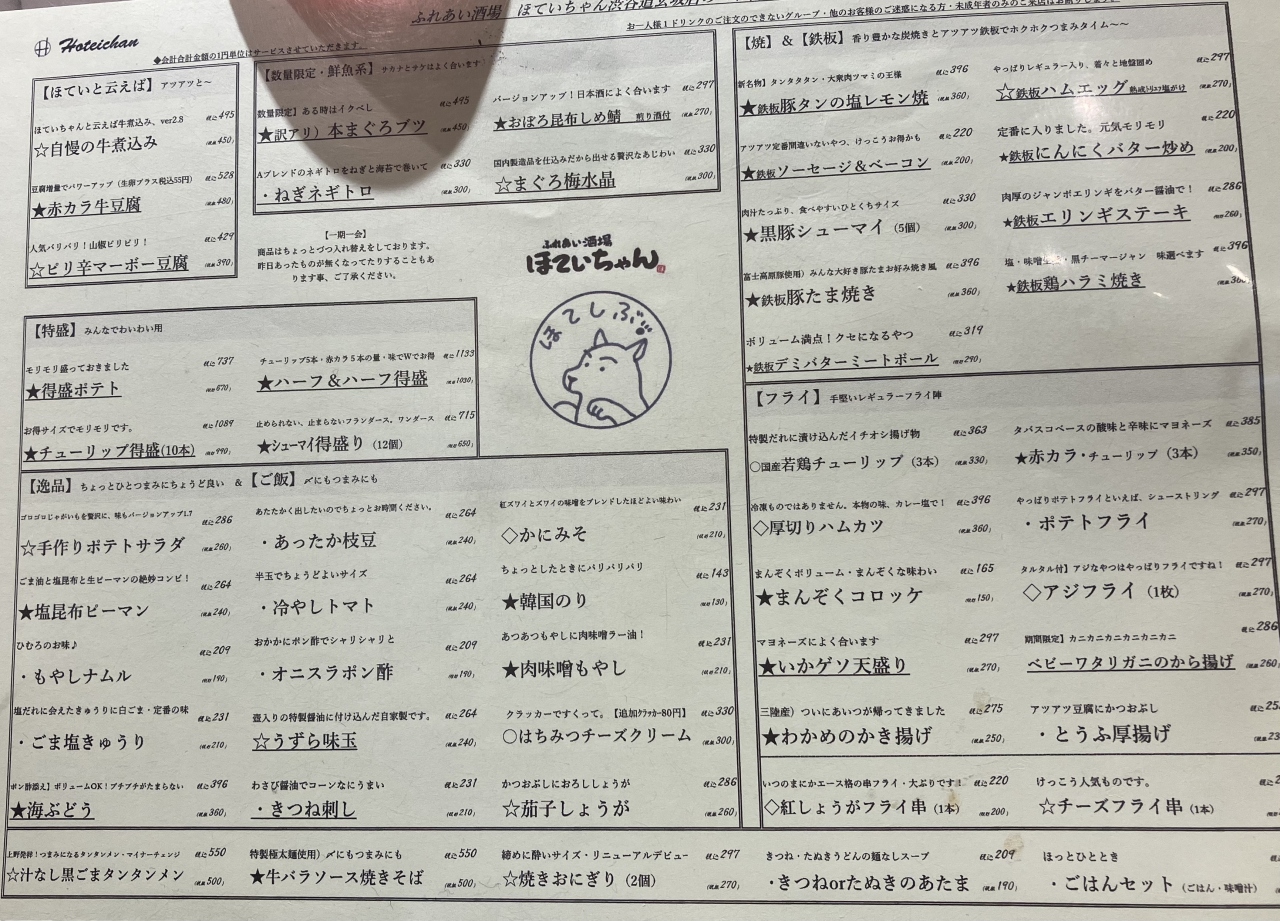 ふれあい酒場 ほていちゃん渋谷道玄坂
お一人様1ドリンクのご注文のできないグループ・他のお客様のご迷惑になる方・未成年者のみのご来店は
Hoteichan
◆会計合計金額の1円単位はサービスさせていただきます。
【ほていと云えば】 アツアツと〜
ほていちゃんと云えば牛煮込み、ver2.8 税込495
☆自慢の牛煮込み (税抜450)
豆腐増量でパワーアップ（生卵プラス税込55円） 税込528
★赤カラ牛豆腐 (税抜480)
人気バリバリ！山椒ビリビリ！ 税込429
☆ピリ辛マーボー豆腐 (税抜390)
【数量限定・鮮魚系】 サカナとサケはよく合います
数量限定】ある時はイクべし 税込495
★訳アリ）本まぐろブツ (税抜450)
Aブレンドのネギトロをねぎと海苔で巻いて 税込330
・ねぎネギトロ (税抜300)
バージョンアップ！日本酒によく合います 税込297
★おぼろ昆布しめ鯖 煎り酒付 (税抜270)
国内製造品を仕込みだから出せる贅沢なあじわい 税込330
☆まぐろ梅水晶 (税抜300)
【一期一会】
商品はちょっとづつ入れ替えをしております。
昨日あったものが無くなってたりすることもあ
ります事、ご了承ください。
ふれあい酒場
ほていちゃん
ほてしぶ
【特盛】 みんなでわいわい用
モリモリ盛っておきました 税込737
★得盛ポテト (税抜670)
お得サイズでモリモリです。 税込1089
★チューリップ得盛(10本) (税抜990)
チューリップ5本・赤カラ5本の量・味でWでお得 税込1133
★ハーフ＆ハーフ得盛 (税抜1030)
止められない、止まらないフランダース。ワンダース 税込715
★シューマイ得盛り（12個） (税抜650)
【逸品】 ちょっとひとつまみにちょうど良い ＆【ご飯】〆にもつまみにも
ゴロゴロじゃがいもを贅沢に、味もバージョンアップ1.7 税込286
☆手作りポテトサラダ (税抜260)
ごま油と塩昆布と生ピーマンの絶妙コンビ！ 税込264
★塩昆布ピーマン (税抜240)
ひむろのお味♪ 税込209
・もやしナムル (税抜190)
塩だれに会えたきゅうりに白ごま・定番の味 税込231
・ごま塩きゅうり (税抜210)
ポン酢添え】ボリュームOK！プチプチがたまらない 税込396
★海ぶどう (税抜360)
あたたかく出したいのでちょっとお時間ください。 税込264
・あったか枝豆 (税抜240)
半玉でちょうどよいサイズ 税込264
・冷やしトマト (税抜240)
おかかにポン酢でシャリシャリと 税込209
・オニスラポン酢 (税抜190)
壺入りの特製醤油に付け込んだ自家製です。 税込264
☆うずら味玉 (税抜240)
わさび醤油でコーンなにうまい 税込231
・きつね刺し (税抜210)
紅ズワイとズワイの味噌をブレンドしたほどよい味わい 税込231
◇かにみそ (税抜210)
ちょっとしたときにバリバリバリ 税込143
★韓国のり (税抜130)
あつあつもやしに肉味噌ラー油！ 税込231
★肉味噌もやし (税抜210)
クラッカーですくって。【追加クラッカー80円】 税込330
○はちみつチーズクリーム (税抜300)
かつおぶしにおろししょうが 税込286
☆茄子しょうが (税抜260)
【焼】＆【鉄板】 香り豊かな炭焼きとアツアツ鉄板でホクホクつまみタイム〜〜
新名物】タンタタタン・大衆肉ツマミの王様 税込396
★鉄板豚タンの塩レモン焼 (税抜360)
アツアツ定番間違いないやつ、けっこうお得かも 税込220
★鉄板ソーセージ＆ベーコン (税抜200)
肉汁たっぷり、食べやすいひとくちサイズ 税込330
★黒豚シューマイ（5個） (税抜300)
富士高原豚使用）みんな大好き豚たまお好み焼き風 税込396
★鉄板豚たま焼き (税抜360)
ボリューム満点！クセになるやつ 税込319
★鉄板デミバターミートボール (税抜290)
やっぱりレギュラー入り、着々と地盤固め 税込297
☆鉄板ハムエッグ 熟成トリュフ塩がけ (税抜270)
定番に入りました。元気モリモリ 税込220
★鉄板にんにくバター炒め (税抜200)
肉厚のジャンボエリンギをバター醤油で！ 税込286
★鉄板エリンギステーキ (税抜260)
黒チーマージャン 味選べます 税込396
★鉄板鶏ハラミ焼き (税抜360)
【フライ】 手堅いレギュラーフライ陣
特製だれに漬け込んだイチオシ揚げ物 税込363
○国産若鶏チューリップ（3本） (税抜330)
冷凍ものではありません。本物の味、カレー塩で！ 税込396
◇厚切りハムカツ (税抜360)
まんぞくボリューム・まんぞくな味わい 税込165
★まんぞくコロッケ (税抜150)
マヨネーズによく合います 税込297
★いかゲソ天盛り (税抜270)
三陸産）ついにあいつが帰ってきました 税込275
★わかめのかき揚げ (税抜250)
いつのまにかエース格の串フライ・大ぶりです！ 税込220
◇紅しょうがフライ串（1本） (税抜200)
タバスコベースの酸味と辛味にマヨネーズ 税込385
★赤カラ・チューリップ（3本） (税抜350)
やっぱりポテトフライといえば、シューストリング 税込297
・ポテトフライ (税抜270)
タルタル付】アジなやつはやっぱりフライですね！ 税込297
◇アジフライ（1枚） (税抜270)
期間限定】カニカニカニカニカニカニ 税込286
ベビーワタリガニのから揚げ (税抜260
アツアツ豆腐にかつおぶし
・とうふ厚揚げ
けっこう人気ものです。
☆チーズフライ串（1本）
上野発祥！つまみになるタンタンメン・マイナーチェンジ 税込550
☆汁なし黒ごまタンタンメン (税抜500)
特製極太麺使用）〆にもつまみにも 税込550
★牛バラソース焼きそば (税抜500)
締めに酔いサイズ・リニューアルデビュー 税込297
☆焼きおにぎり（2個） (税抜270)
きつね・たぬきうどんの麺なしスープ 税込209
・きつねorたぬきのあたま (税抜190)
ほっとひととき
・ごはんセット（ごはん・味噌汁）